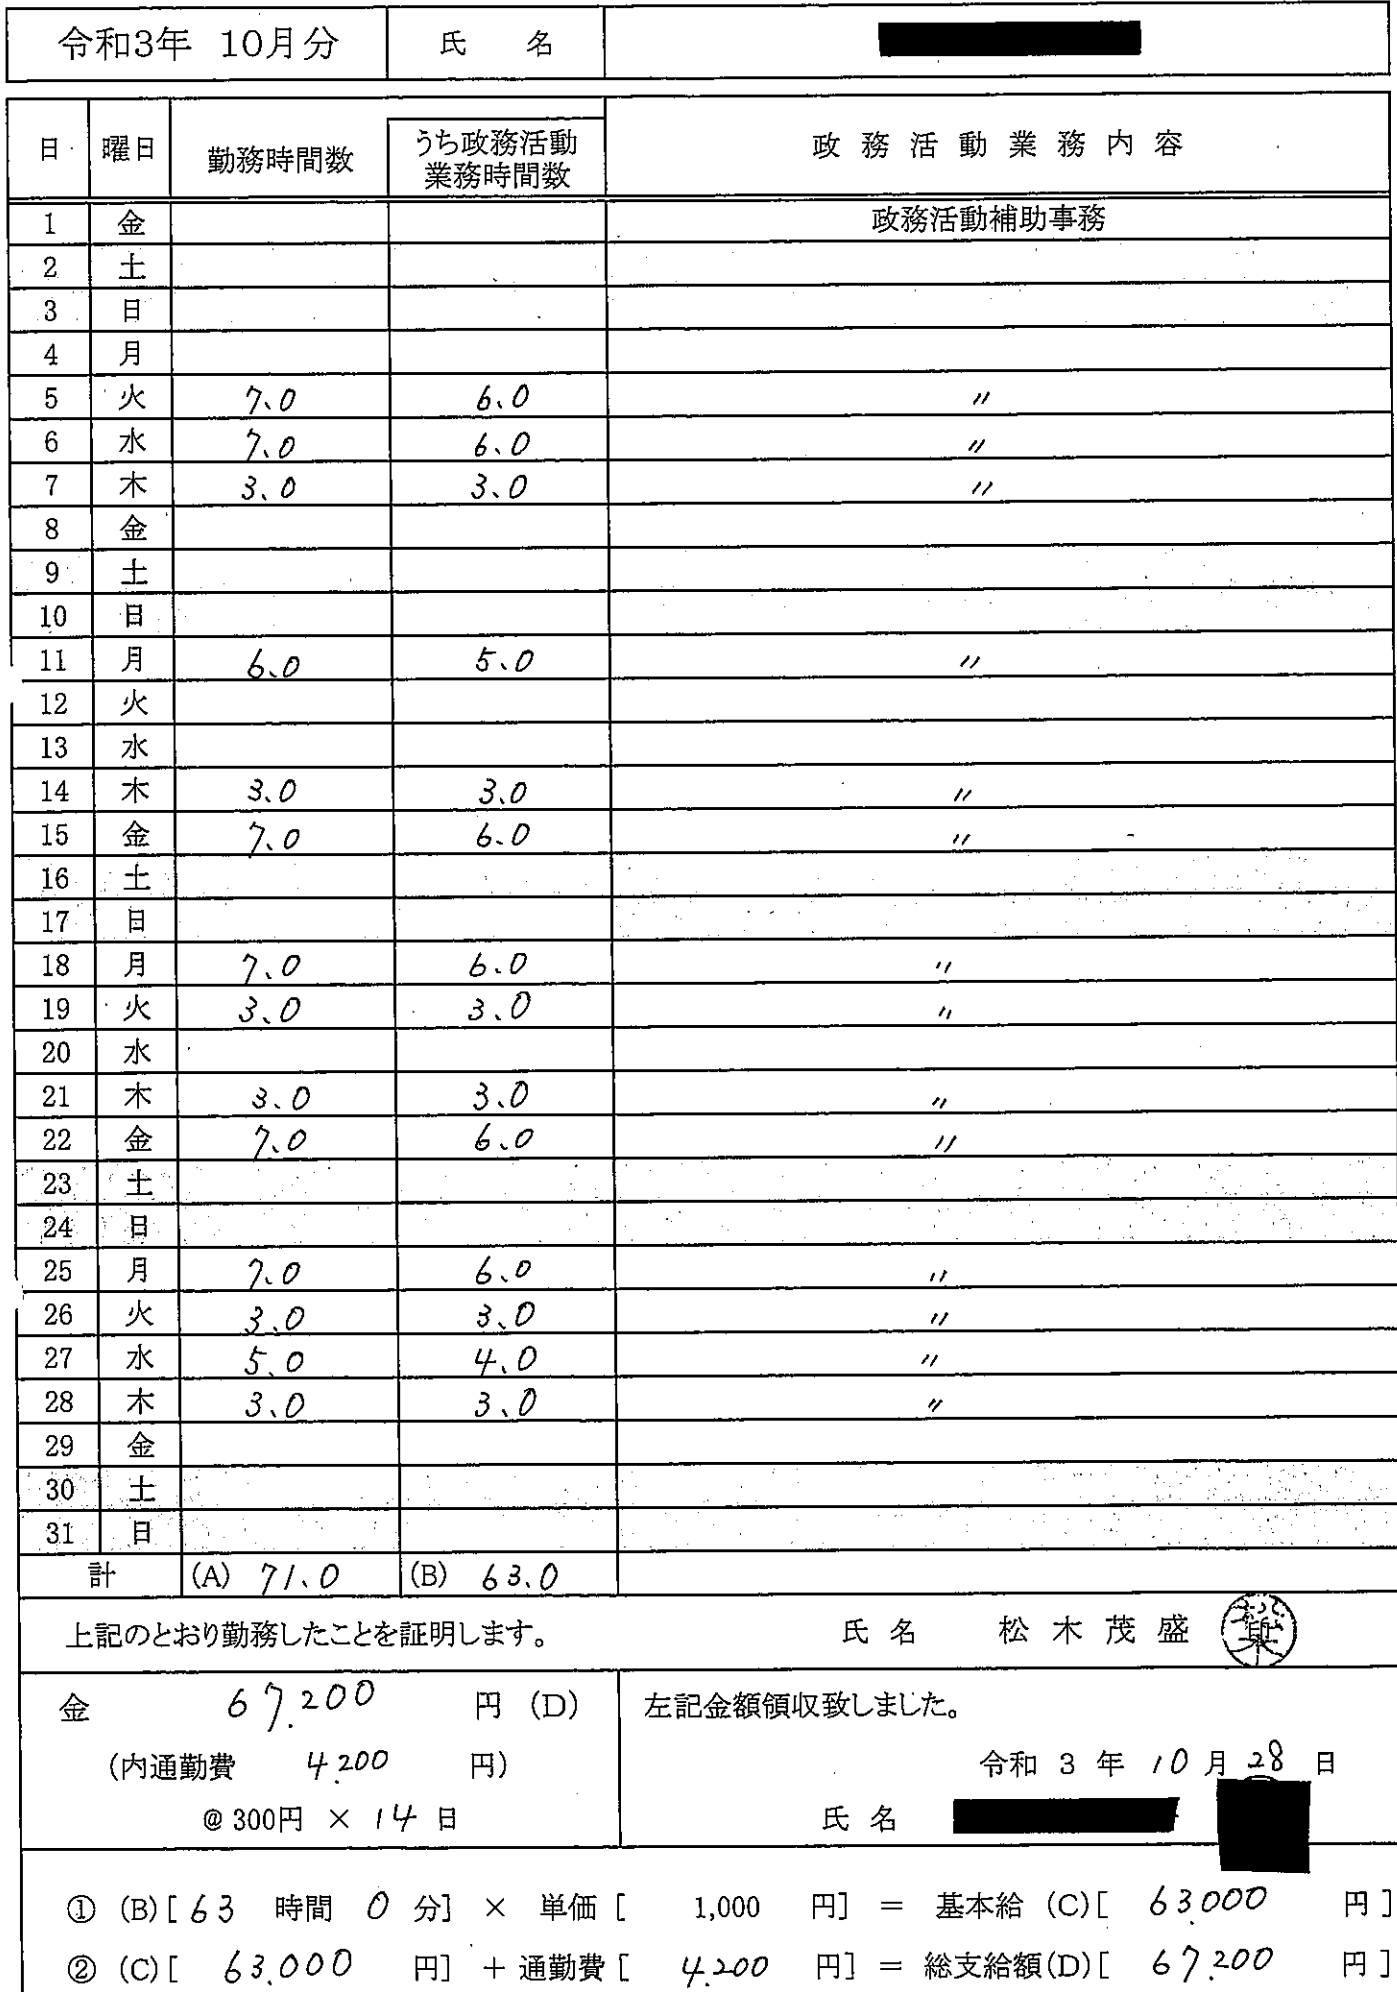 令和3年 10月分 氏 名
日 曜日 勤務時間数 うち政務活動業務時間数 政務活動業務内容
1 金 政務活動補助事務
2 土
3 日
4 月
5 火 7.0 6.0 〃
6 水 7.0 6.0 〃
7 木 3.0 3.0 〃
8 金
9 土
10 日
11 月 6.0 5.0 〃
12 火
13 水
14 木 3.0 3.0 〃
15 金 7.0 6.0 〃
16 土
17 日
18 月 7.0 6.0 〃
19 火 3.0 3.0 〃
20 水
21 木 3.0 3.0 〃
22 金 7.0 6.0 〃
23 土
24 日
25 月 7.0 6.0 〃
26 火 3.0 3.0 〃
27 水 5.0 4.0 〃
28 木 3.0 3.0 〃
29 金
30 土
31 日
計 (A) 71.0 (B) 63.0
上記のとおり勤務したことを証明します。 氏名 松木茂盛
金 67,200 円 (D) 左記金額領収致しました。
(内通勤費 4,200 円) 令和 3 年 10 月 28 日
@300円 × 14 日 氏名
① (B)[63 時間 0 分] × 単価 [ 1,000 円] = 基本給 (C)[ 63,000 円]
② (C)[ 63,000 円] + 通勤費 [ 4,200 円] = 総支給額(D)[ 67,200 円]